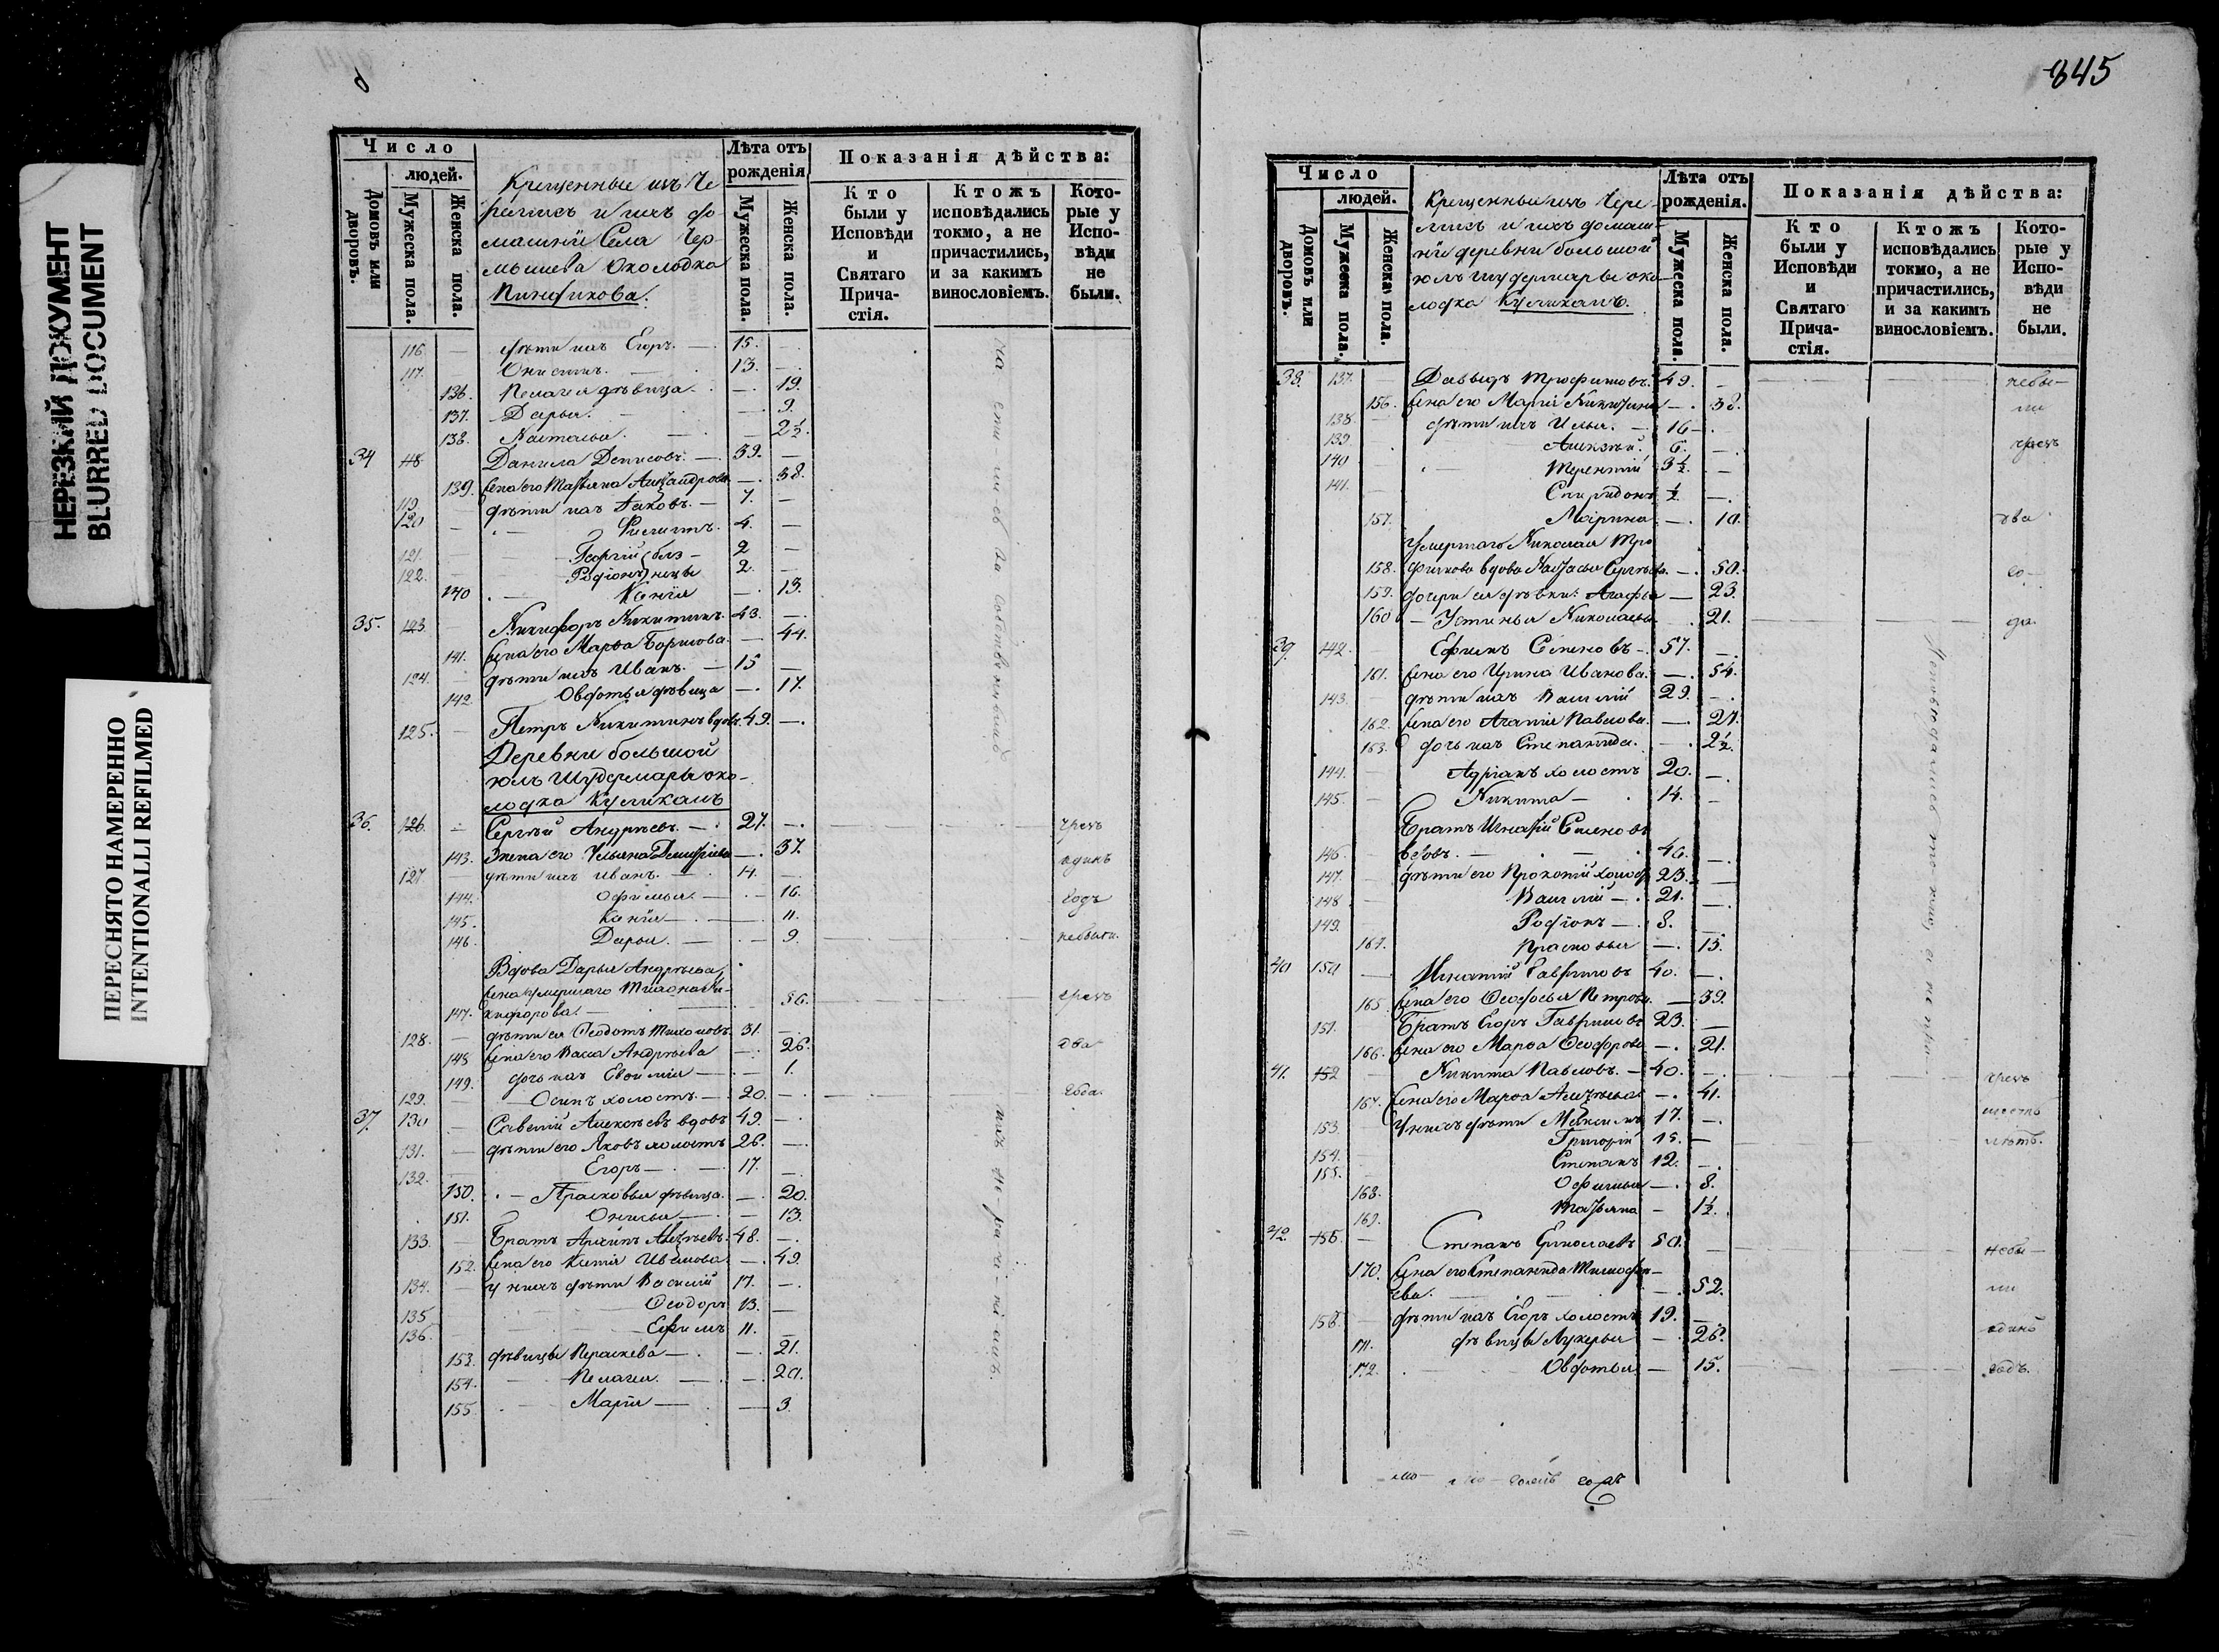 НЕРЕЗКИЙ ДОКУМЕНТ
BLURRED DOCUMENT
ПЕРЕСНЯТО НАМЕРЕННО
INTENTIONALLI REFILMED
Число
людей.
Домовъ или дворовъ.
Мужеска пола.
Женска пола.
Крещенные изъ Че
ремисъ и ихъ до
машніи Села Чер-
мышева Околодка
Лѣта отъ рожденія
Мужеска пола.
Женска пола.
Показанія дѣйства:
Кто были у Исповѣди и Святаго Прича- стія.
Ктожъ исповѣдались токмо, а не причастились, и за какимъ винословіемъ.
Кото- рые у Испо- вѣди не были.
116. — дѣти ихъ Егоръ. — 15. —
117. — Онисимъ. — 13. —
136. Пелагея дѣвица. — 19.
137. Дарья. — 9.
138. Настасья. — 2½.
34 118 Данила Денисовъ. — 39. —
139. Жена его Татьяна Александрова — 38.
119 — дѣти ихъ Іаковъ. — 7. —
120 — Филиппъ. 4. —
121. — Георгій близ- 2 —
122. — Родіонъ нецы 2. —
140 — Ксенія — 13.
35. 123. Никифоръ Никитинъ. 43. —
141. Жена его Марѳа Борисова. — 44.
124. — дѣти ихъ Иванъ. — 15 —
142 Овдотья дѣвица — 17.
125. — Петръ Никитинъ вдовъ. 49. —
Деревни большой
юль Шудермары око-
лодка Кусиканъ
36. 126. — Сергѣй Андреевъ. — 27. — чрезъ
143. Жена его Ульяна Дмитріева — 37. одинъ
127. — дѣти ихъ Иванъ. — 14. —
144. Офимья — 16. годъ
145. Ксенія — 11.
146. Дарья. — 9. небыли.
Вдова Дарья Андреева,
жена умершаго Тихона Ни-
147. кифорова. — 56. чрезъ
128. — дѣти ея Ѳеодотъ Тихоновъ. 31. —
148 Жена его Васса Андреева — 26. два
149. дочь ихъ Евѳимія — 1.
129. — Осипъ холостъ. — 20. — года.
37. 130 — Савелій Алексѣевъ вдовъ 49. —
131. — дѣти его Яковъ холостъ 26. —
132. — Егоръ — 17. —
150. — Прасковья дѣвица. — 20.
151. Онисья — 13.
133. — Братъ Архипъ Алексѣевъ. 48. —
152. Жена его Ксенія Иванова. — 49.
134. — у нихъ дѣти Василій 17. —
135 — Ѳеодоръ 13. —
136. — Ефимъ 11. —
153. дѣвицы Параскева — 21.
154. — Пелагея. — 20.
155. — Марія — 3.
845
Число
людей.
Домовъ или дворовъ.
Мужеска пола.
Женска пола.
Крещенные изъ Чере-
мисъ и ихъ домаш-
ніи деревни большой
юль Шудермары око-
лодка Кусиканъ.
Лѣта отъ рожденія.
Мужеска пола.
Женска пола.
Показанія дѣйства:
Кто были у Исповѣди и Святаго Прича- стія.
Ктожъ исповѣдались токмо, а не причастились, и за какимъ винословіемъ.
Кото- рые у Испо- вѣди не были.
38. 137. — Давыдъ Трофимовъ. 49. — небы-
156. Жена его Марія Никитина — 38. ли
138. — дѣти ихъ Илья. — 16 —
139. Алексѣй. 6. — чрезъ
140 — Терентій 3½. —
141. — Спиридонъ ½ —
157. Марина — 10. два
умершаго Николая Тро
158. фимова вдова Настасья Сергѣева. — 50. го-
159. дочери ея дѣвки: Агафья — 23.
160 — Устинья Николаевы. 21. да.
39. 142. — Ефимъ Семеновъ — 57. —
161. Жена его Ирина Иванова. — 54.
143. — дѣти ихъ Василій 29. —
162. Жена его Агапія Павлова. — 27.
163. дочь ихъ Степанида. — 2½.
144. — Адріанъ холостъ 20. —
145. — Никита — 14. —
Братъ Игнатій Семеновъ
146. — вдовъ. — 46. —
147. — дѣти его Прокопій холостъ 23. —
148 — Василій — 21. —
149. — Родіонъ — 8. —
164. Прасковья — 15.
40 150 — Игнатій Гавриловъ 40. —
165. Жена его Ѳеодосья Петрова. — 39.
151. — Братъ Егоръ Гавриловъ 23. —
166. Жена его Марѳа Ѳеодорова — 21.
41. 152 — Никита Павловъ. — 40. — чрезъ
167. Жена его Марѳа Алексѣева — 41.
153. — у нихъ дѣти Максимъ 17. — шесть
154. — Григорій 15. — лѣтъ.
155. — Степанъ 12. —
168. Офимья — 8.
169. Татьяна — 1½.
42. 156. — Степанъ 50. — небы-
170. Жена его Степанида Тимофе-
ева. — 52. ли
158. — дѣти ихъ Егоръ холостъ 19. —
171. дѣвицы Лукерья — 26. одинъ
172. Овдотья — 15. годъ.